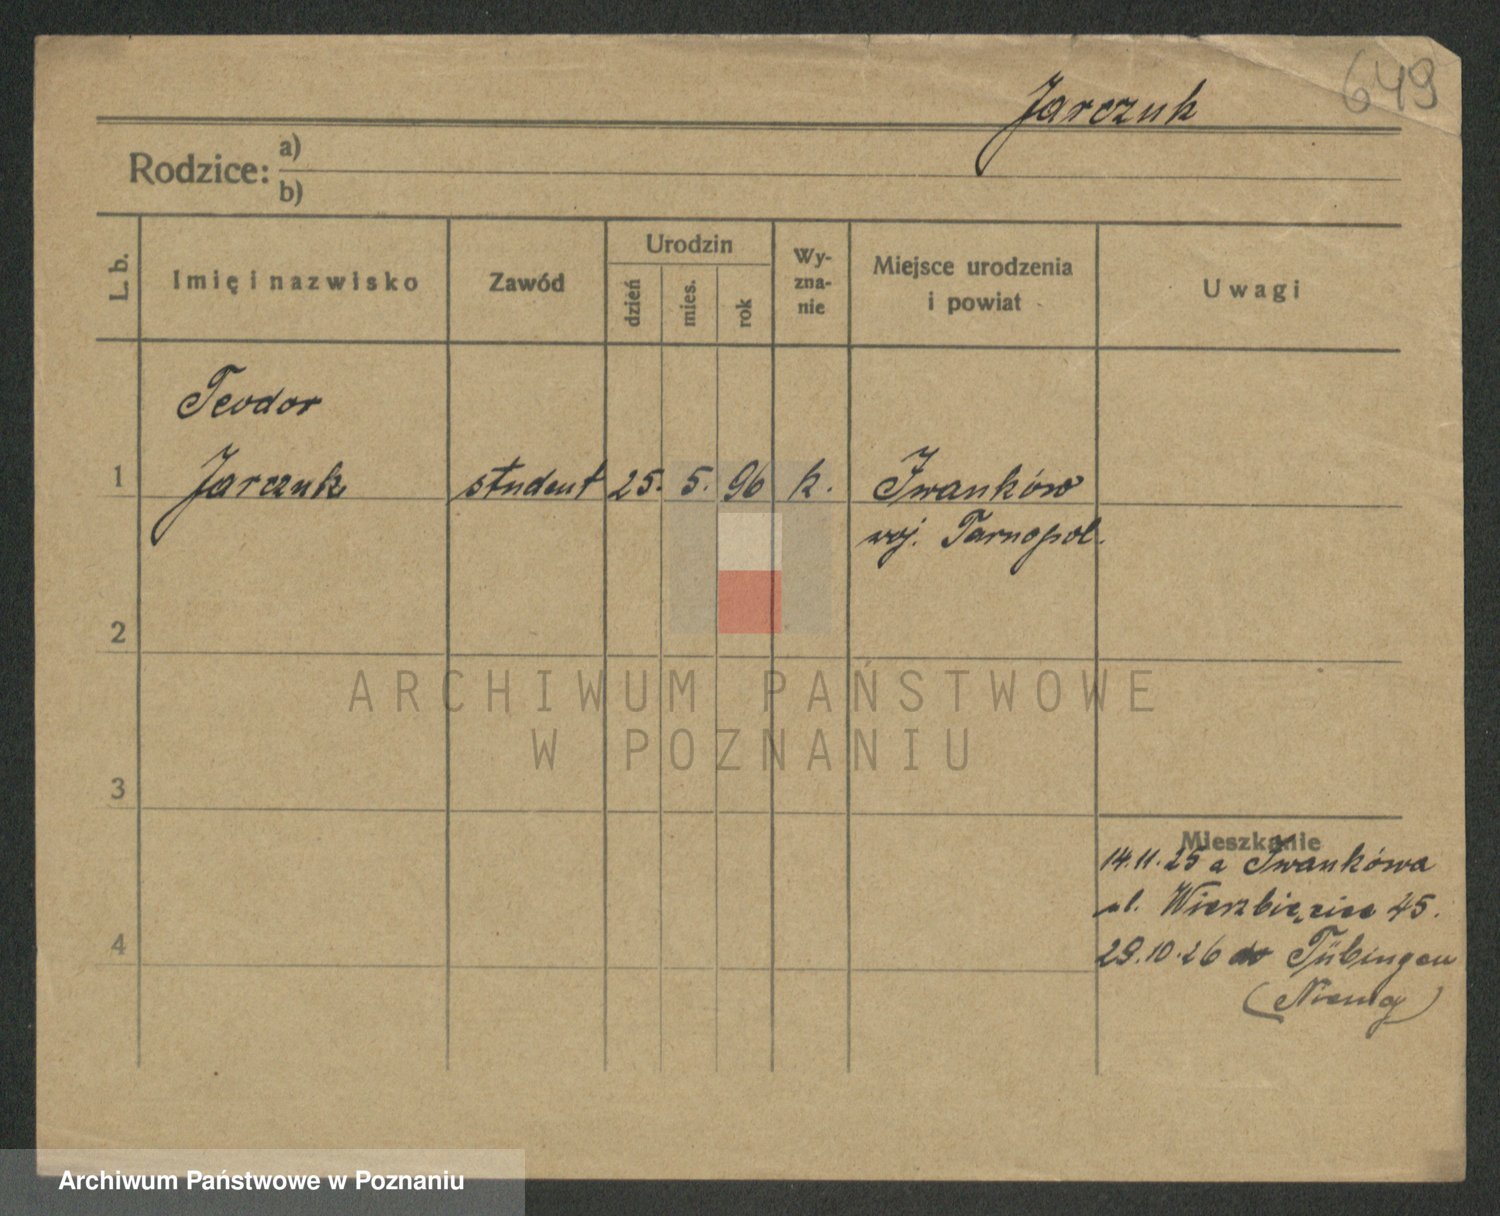 649
Jarczuk
Rodzice: a)
b)
L. b.
Imię i nazwisko
Zawód
Urodzin
dzień
mies.
rok
Wy-
zna-
nie
Miejsce urodzenia
i powiat
Uwagi
Teodor
1 Jarczuk student 25. 5. 96 k. Iwanków
woj. Tarnopol.
2
ARCHIWUM PAŃSTWOWE
W POZNANIU
3
Mieszkanie
14.11.25 a Iwankówa
ul. Wierzbięcice 45.
4
29.10.26 do Tübingen
(Niemcy)
Archiwum Państwowe w Poznaniu